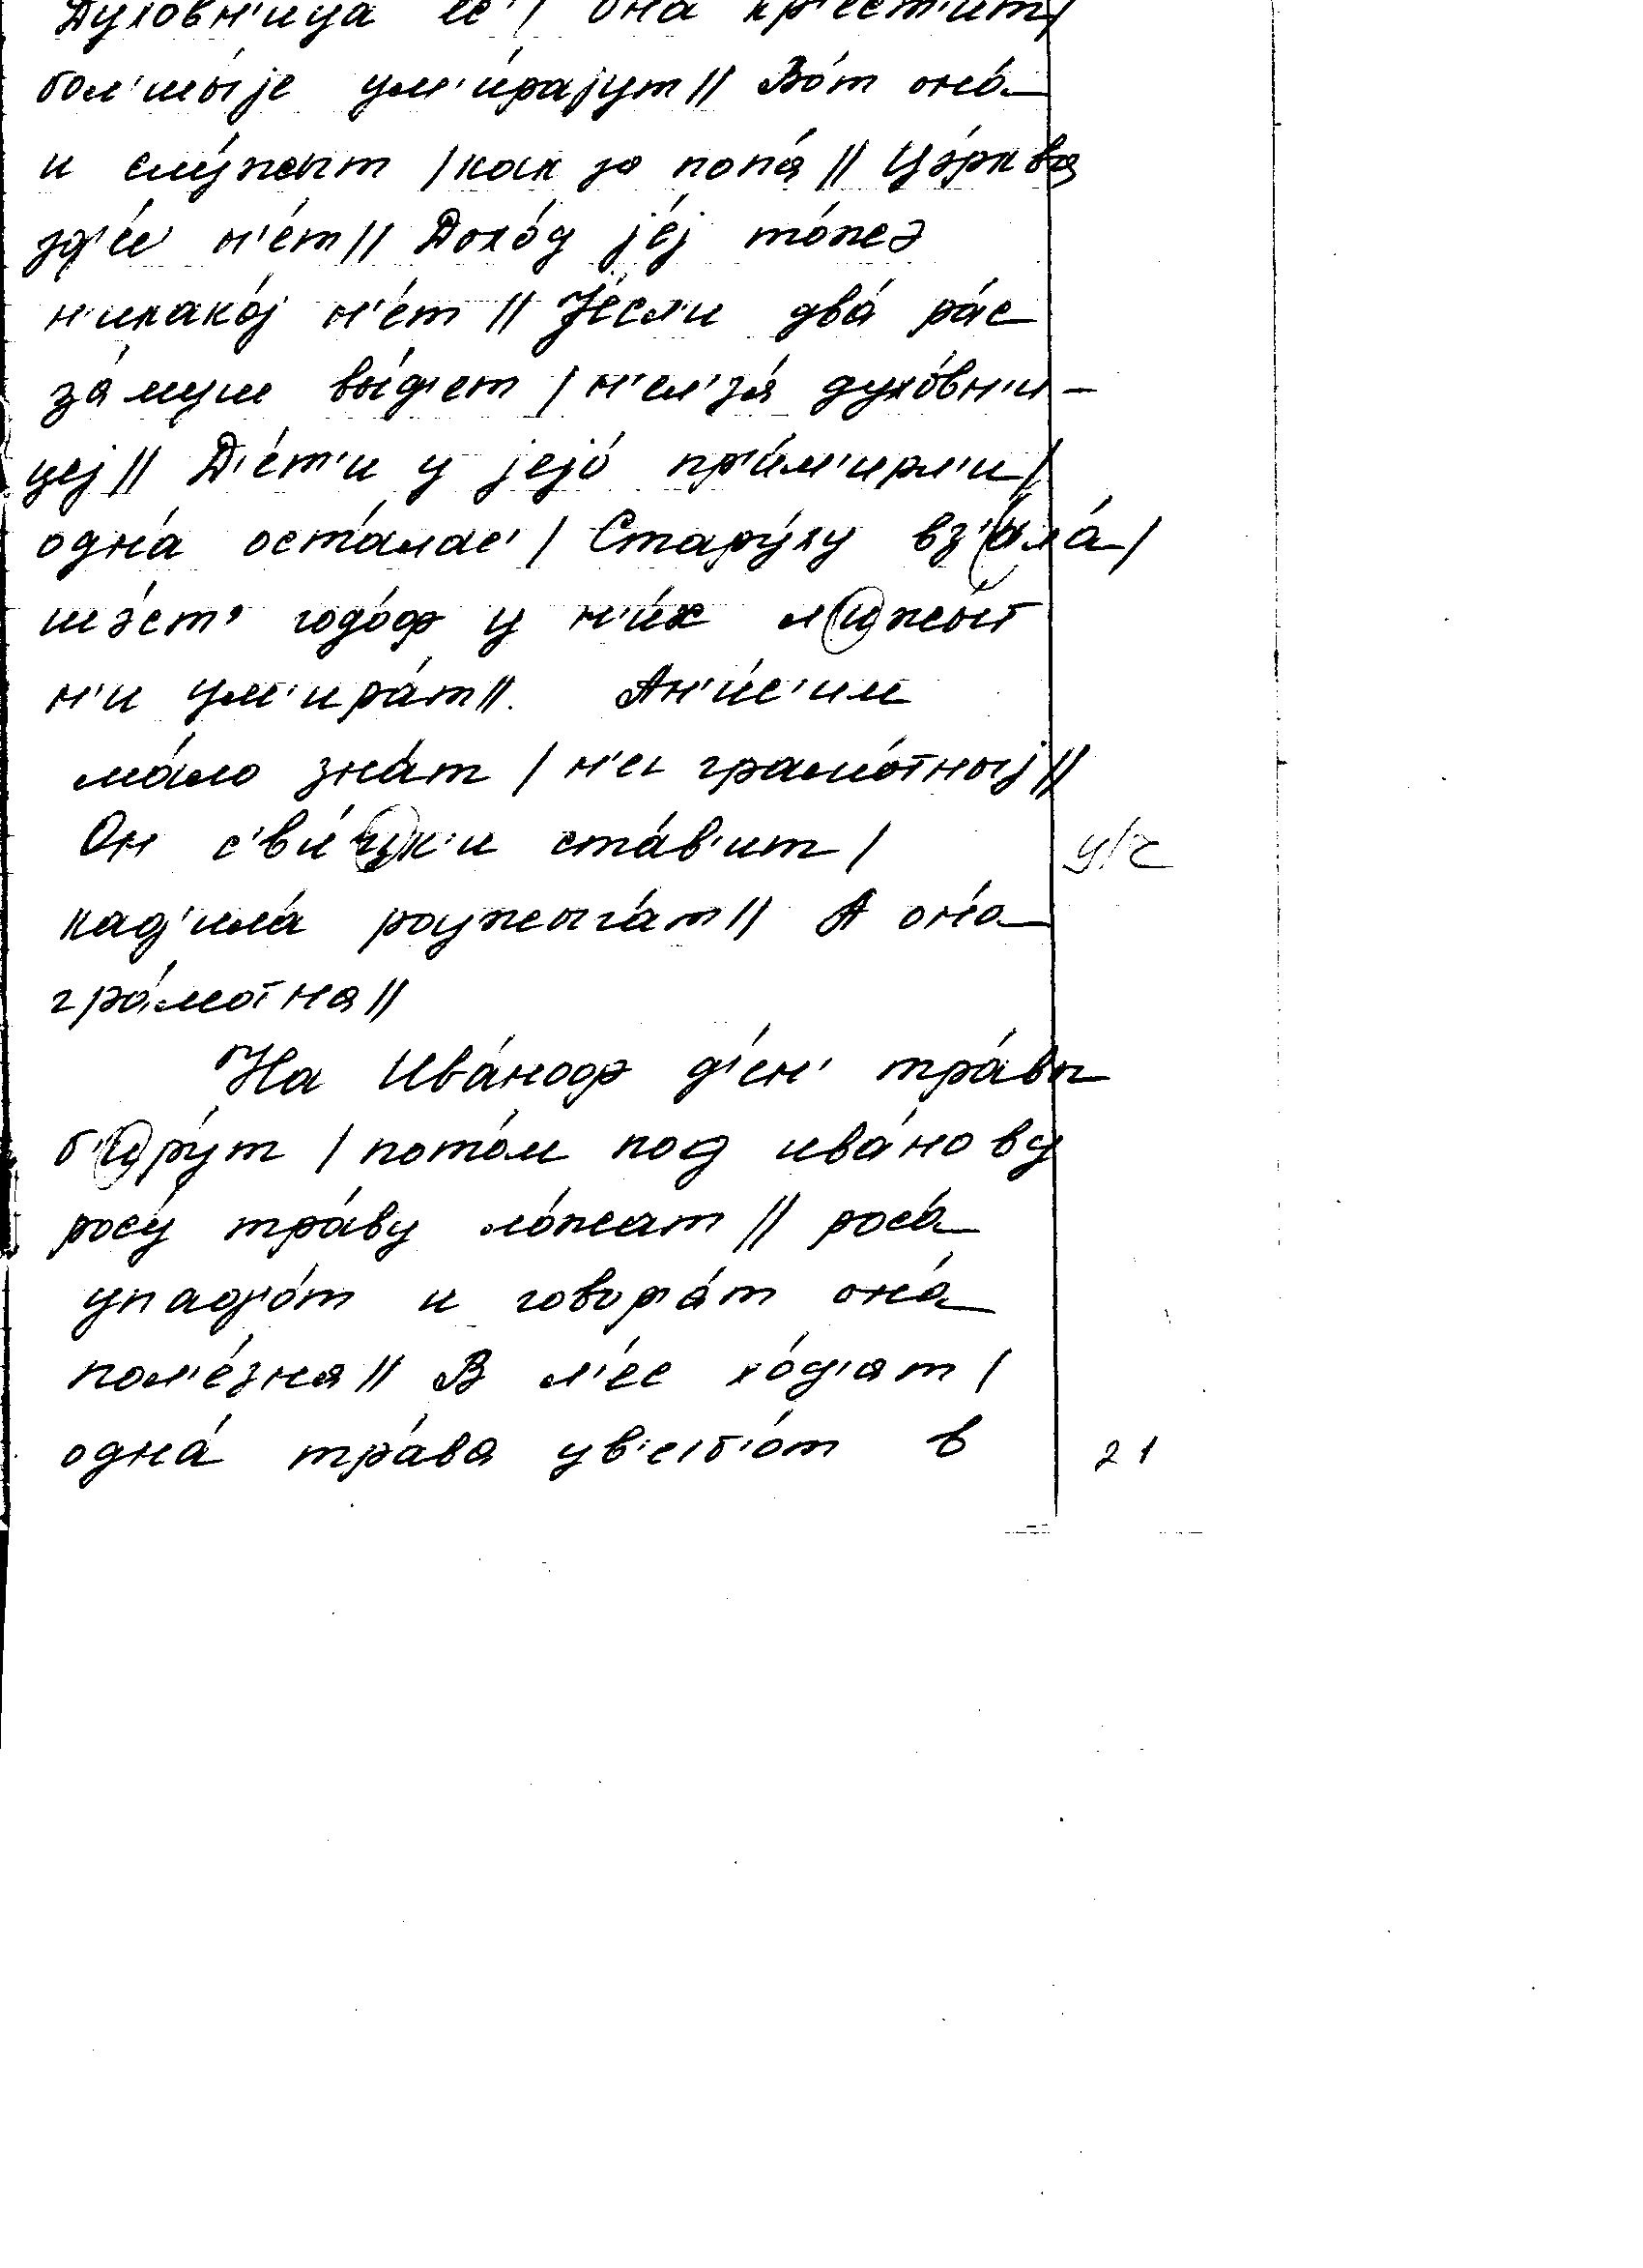 Духовн'ица ес'/ она кр'ест'ит/
бол'шы́је ум'ира́јут// Во́т она́
и слу́жыт /как за попа́// Цэ́рква
зд'е́с' н'е́т// Дохо́д је́ј то́жэ
н'икако́ј н'е́т// Је́сл'и два́ ра́с
за́муш вы́д'ет / н'ел'з'а́ духо́вн'и-
цеј// Д'е́т'и у јејо́ пр'и́м'ирл'и/
одна́ оста́лас'/ Стару́ху вз'ила́/
шэ́ст' годо́ф у н'и́х л'ижы́т
н'и ум'ира́т//. Ан'и́с'им
ма́ло зна́т / н'е грамо́тныј//
Он с'в'и́цк'и ста́в'ит/
ц/ч
кад'ила́ роужыга́т// А она́
гра́мотна//
На Ива́ноф д'ен' тра́вы
б'иру́т / пото́м под ива́нову
росу́ тра́ву ло́жат// роса́
упад'о́т и говор'а́т она́
пол'е́зна// В л'е́с хо́д'ат/
одна́ тра́ва цв'ет'о́т в
21